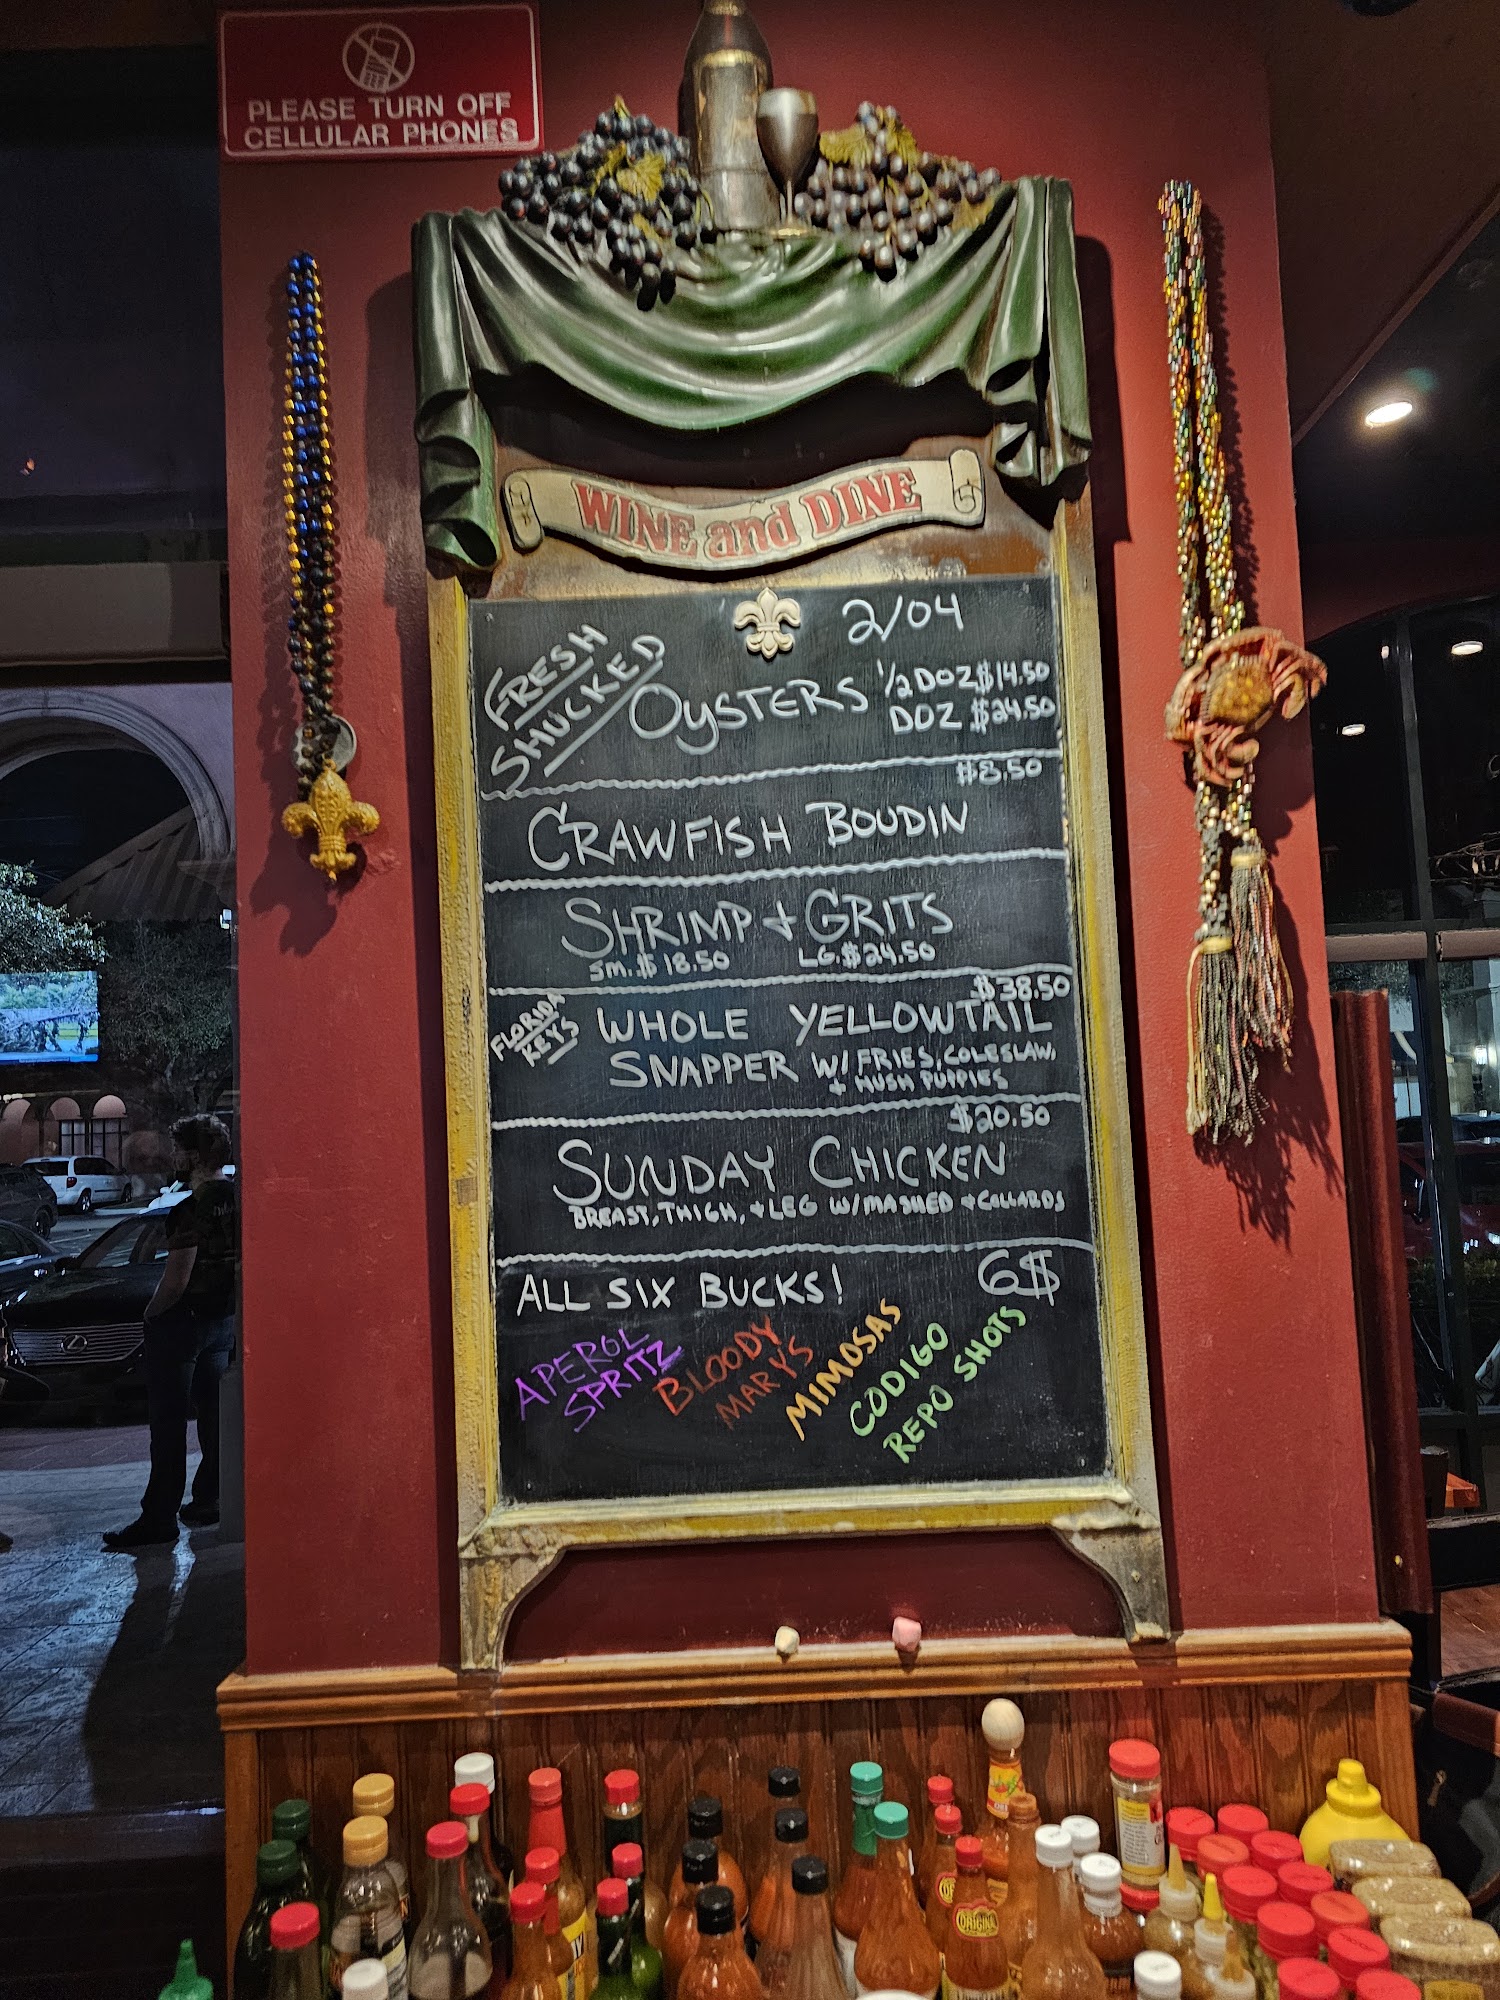 PLEASE TURN OFF
CELLULAR PHONES
WINE and DINE
2/04
FRESH
SHUCKED
OYSTERS
1/2 DOZ $14.50
DOZ $24.50
$8.50
CRAWFISH BOUDIN
SHRIMP + GRITS
SM. $18.50 LG. $24.50
$38.50
FLORIDA
KEYS
WHOLE YELLOWTAIL
SNAPPER W/ FRIES, COLESLAW,
+ HUSH PUPPIES
$20.50
SUNDAY CHICKEN
BREAST, THIGH, + LEG W/ MASHED + COLLARDS
ALL SIX BUCKS! 6$
APEROL
SPRITZ
BLOODY
MARYS
MIMOSAS
CODIGO
REPO SHOTS
ORIGINAL